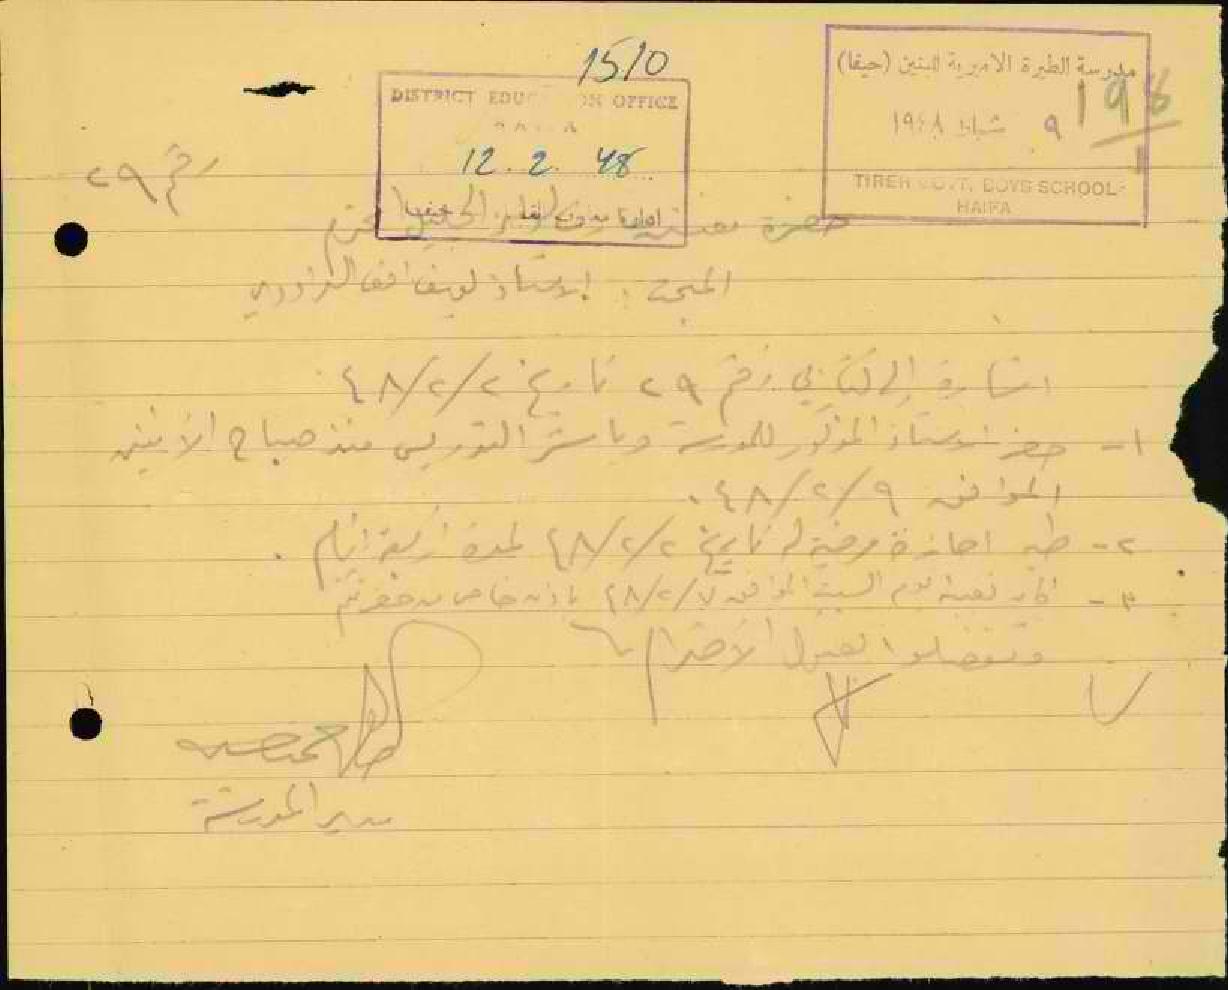 15/0
مدرسة الطيرة الاميرية للبنين (حيفا)
198
٩ شباط ١٩٤٨
TIREH GOVT. BOYS SCHOOL-
HAIFA
DISTRICT EDUCATION OFFICE
HAIFA
12. 2. 48
رقم ٢٩
حضرة مفتش معارف لواء الجليل المحترم
المبحث : الاستاذ
اشارة الى كتابي رقم ٢٩ تاريخ ٤٨/٢/٢
١- حضر الاستاذ المذكور للمدرسة وباشر التدريس منذ صباح الاثنين
الموافق ٤٨/٢/٩.
٢- طيه اجازة مرضية له تاريخ ٤٨/٢/٢ لمدة اربعة ايام .
٣- كان تغيبه يوم السبت الموافق ٤٨/٢/٧ باذن خاص من حضرتكم
وتفضلوا بقبول الاحترام
مدير المدرسة